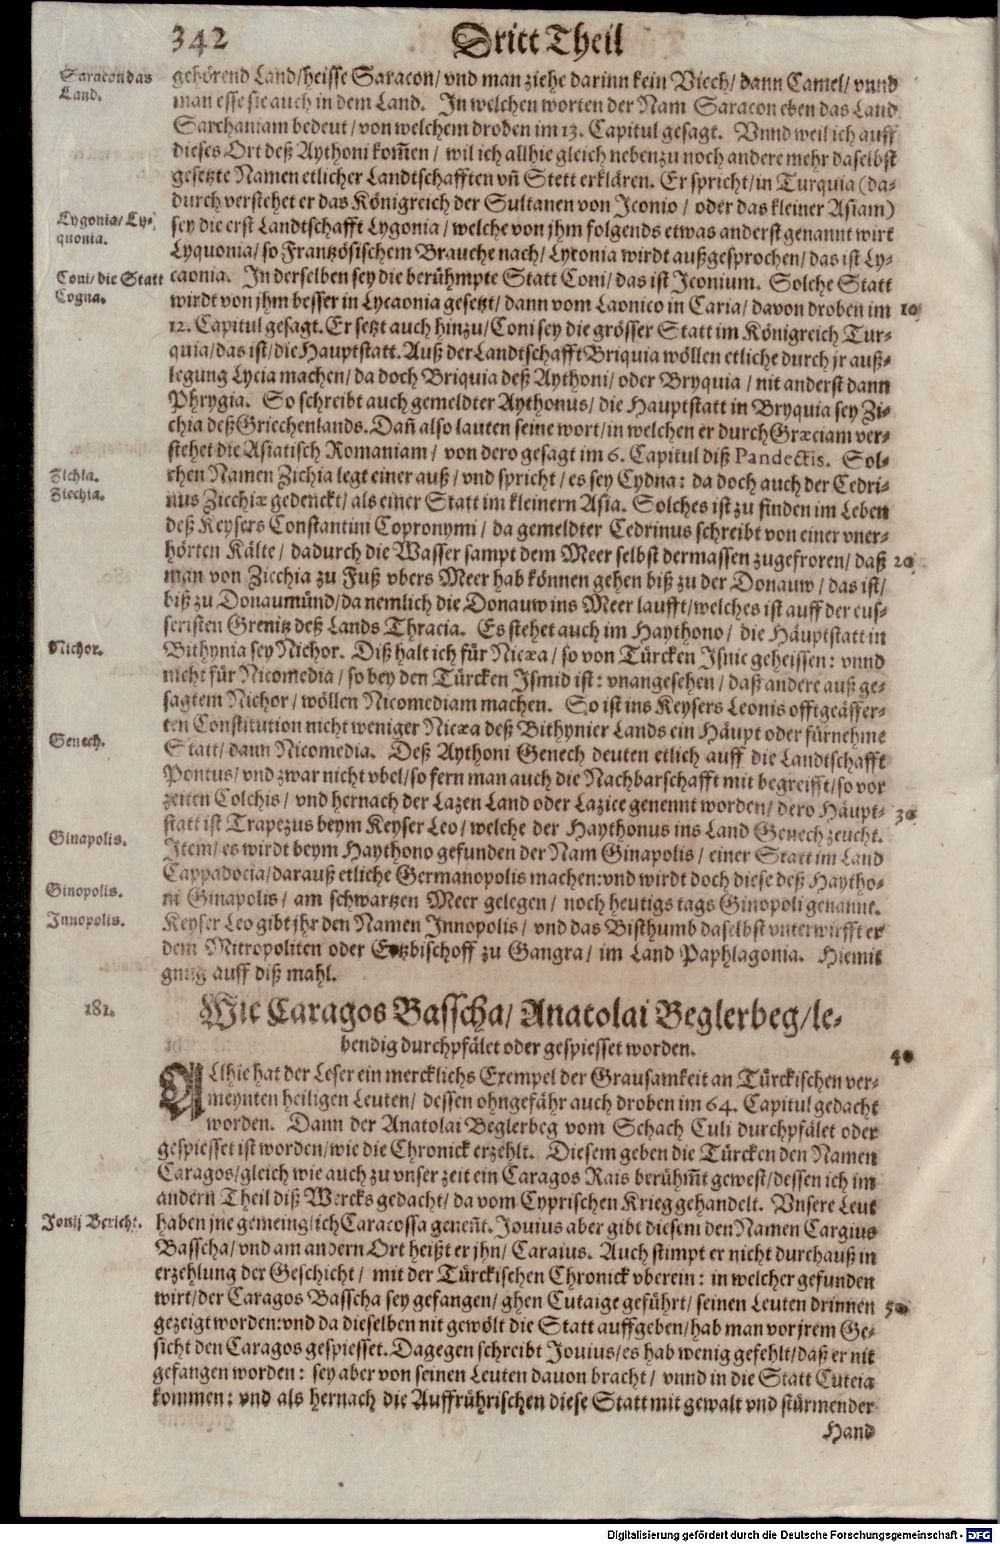 342 Dritt Theil
Saracon das Land.
gehörend Land/heisse Saracon/ vnd man ziehe darinn kein Viech/ dann Camel/ vnnd
man esse sie auch in dem Land. In welchen worten der Nam Saracon eben das Land
Sarchaniam bedeut/ von welchem droben im 13. Capitul gesagt. Vnnd weil ich auff
dieses Ort deß Aythoni kom̄en/ wil ich allhie gleich nebenzu noch andere mehr daselbst
gesetzte Namen etlicher Landtschafften vn̄ Stett erklären. Er spricht/ in Turquia (da-
durch verstehet er das Königreich der Sultanen von Iconio/ oder das kleiner Asiam)
Lygonia/ Ly-
quonia.
sey die erst Landtschafft Lygonia/ welche von jhm folgends etwas anderst genannt wirt
Lyquonia/ so Frantzösischem Brauche nach/ Lytonia wirdt außgesprochen/ das ist Ly-
Coni/ die Statt
Cogna.
caonia. In derselben sey die berühmpte Statt Coni/ das ist Iconium. Solche Statt
wirdt von jhm besser in Lycaonia gesetzt/ dann vom Laonico in Caria/ davon droben im 10
12. Capitul gesagt. Er setzt auch hinzu/ Coni sey die grösser Statt im Königreich Tur-
quia/ das ist/ die Hauptstatt. Auß der Landtschafft Briquia wöllen etliche durch jr auß-
legung Lycia machen/ da doch Briquia deß Aythoni/ oder Bryquia/ nit anderst dann
Phrygia. So schreibt auch gemeldter Aythonus/ die Hauptstatt in Bryquia sey Zi-
chia deß Griechenlands. Dan̄ also lauten seine wort/ in welchen er durch Græciam ver-
stehet die Asiatisch Romaniam/ von dero gesagt im 6. Capitul diß Pandectis. Sol-
Zichla.
Ziechia.
chen Namen Zichia legt einer auß/ vnd spricht/ es sey Cydna: da doch auch der Cedri-
nus Ziechiæ gedenckt/ als einer Statt im kleinern Asia. Solches ist zu finden im Leben
deß Keysers Constantini Copronymi/ da gemeldter Cedrinus schreibt von einer vner-
hörten Kälte/ dadurch die Wasser sampt dem Meer selbst dermassen zugefroren/ daß 20
man von Zicchia zu Fuß vbers Meer hab können gehen biß zu der Donauw/ das ist/
biß zu Donaumünd/ da nemlich die Donauw ins Meer laufft/ welches ist auff der eus-
seristen Grenitz deß Lands Thracia. Es stehet auch im Haythono/ die Häuptstatt in
Nichor.
Bithynia sey Nichor. Diß halt ich für Nicæa/ so von Türcken Isnic geheissen: vnnd
nicht für Nicomedia/ so bey den Türcken Ismid ist: vnangesehen/ daß andere auß ge-
sagtem Nichor/ wöllen Nicomediam machen. So ist ins Keysers Leonis offtgeässer-
ten Constitution nicht weniger Nicæa deß Bithynier Lands ein Häupt oder fürnehme
Genech.
Statt/ dann Nicomedia. Deß Aythoni Genech deuten etlich auff die Landtschafft
Pontus/ vnd zwar nicht vbel/ so fern man auch die Nachbarschafft mit begreifft/ so vor
zeiten Colchis/ vnd hernach der Lazen Land oder Lazice genennt worden/ dero Häupt- 30
statt ist Trapezus beym Keyser Leo/ welche der Haythonus ins Land Genech zeucht.
Ginapolis.
Item/ es wirdt beym Haythono gefunden der Nam Ginapolis/ einer Statt im Land
Cappadocia/ darauß etliche Germanopolis machen: vnd wirdt doch diese deß Haytho-
Ginopolis.
ni Ginapolis/ am schwartzen Meer gelegen/ noch heutigs tags Ginopoli genannt.
Innopolis.
Keyser Leo gibt jhr den Namen Innopolis/ vnd das Bisthumb daselbst vnterwirfft er
dem Mitropoliten oder Ertzbischoff zu Gangra/ im Land Paphlagonia. Hiemit
gnug auff diß mahl.
181. Wie Caragos Basscha/ Anatolai Beglerbeg/ le-
bendig durchpfälet oder gespiesset worden. 40
Allhie hat der Leser ein mercklichs Exempel der Grausamkeit an Türckischen ver-
meynten heiligen Leuten/ dessen ohngefähr auch droben im 64. Capitul gedacht
worden. Dann der Anatolai Beglerbeg vom Schach Culi durchpfälet oder
gespiesset ist worden/ wie die Chronick erzehlt. Diesem geben die Türcken den Namen
Caragos/ gleich wie auch zu vnser zeit ein Caragos Rais berühm̄t gewest/ dessen ich im
andern Theil diß Wercks gedacht/ da vom Cyprischen Krieg gehandelt. Vnsere Leut
Jouij Bericht.
haben jne gemeinglich Caracossa genen̄t. Jouius aber gibt diesem den Namen Cargius
Basscha/ vnd am andern Ort heißt er jhn/ Caraius. Auch stimpt er nicht durchauß in
erzehlung der Geschicht/ mit der Türckischen Chronick vberein: in welcher gefunden
wirt/ der Caragos Basscha sey gefangen/ ghen Cutaige geführt/ seinen Leuten drinnen 50
gezeigt worden: vnd da dieselben nit gewölt die Statt auffgeben/ hab man vor jrem Ge-
sicht den Caragos gespiesset. Dagegen schreibt Jouius/ es hab wenig gefehlt/ daß er nit
gefangen worden: sey aber von seinen Leuten dauon bracht/ vnnd in die Statt Cuteia
kommen: vnd als hernach die Auffrührischen diese Statt mit gewalt vnd stürmender
Hand
Digitalisierung gefördert durch die Deutsche Forschungsgemeinschaft - DFG